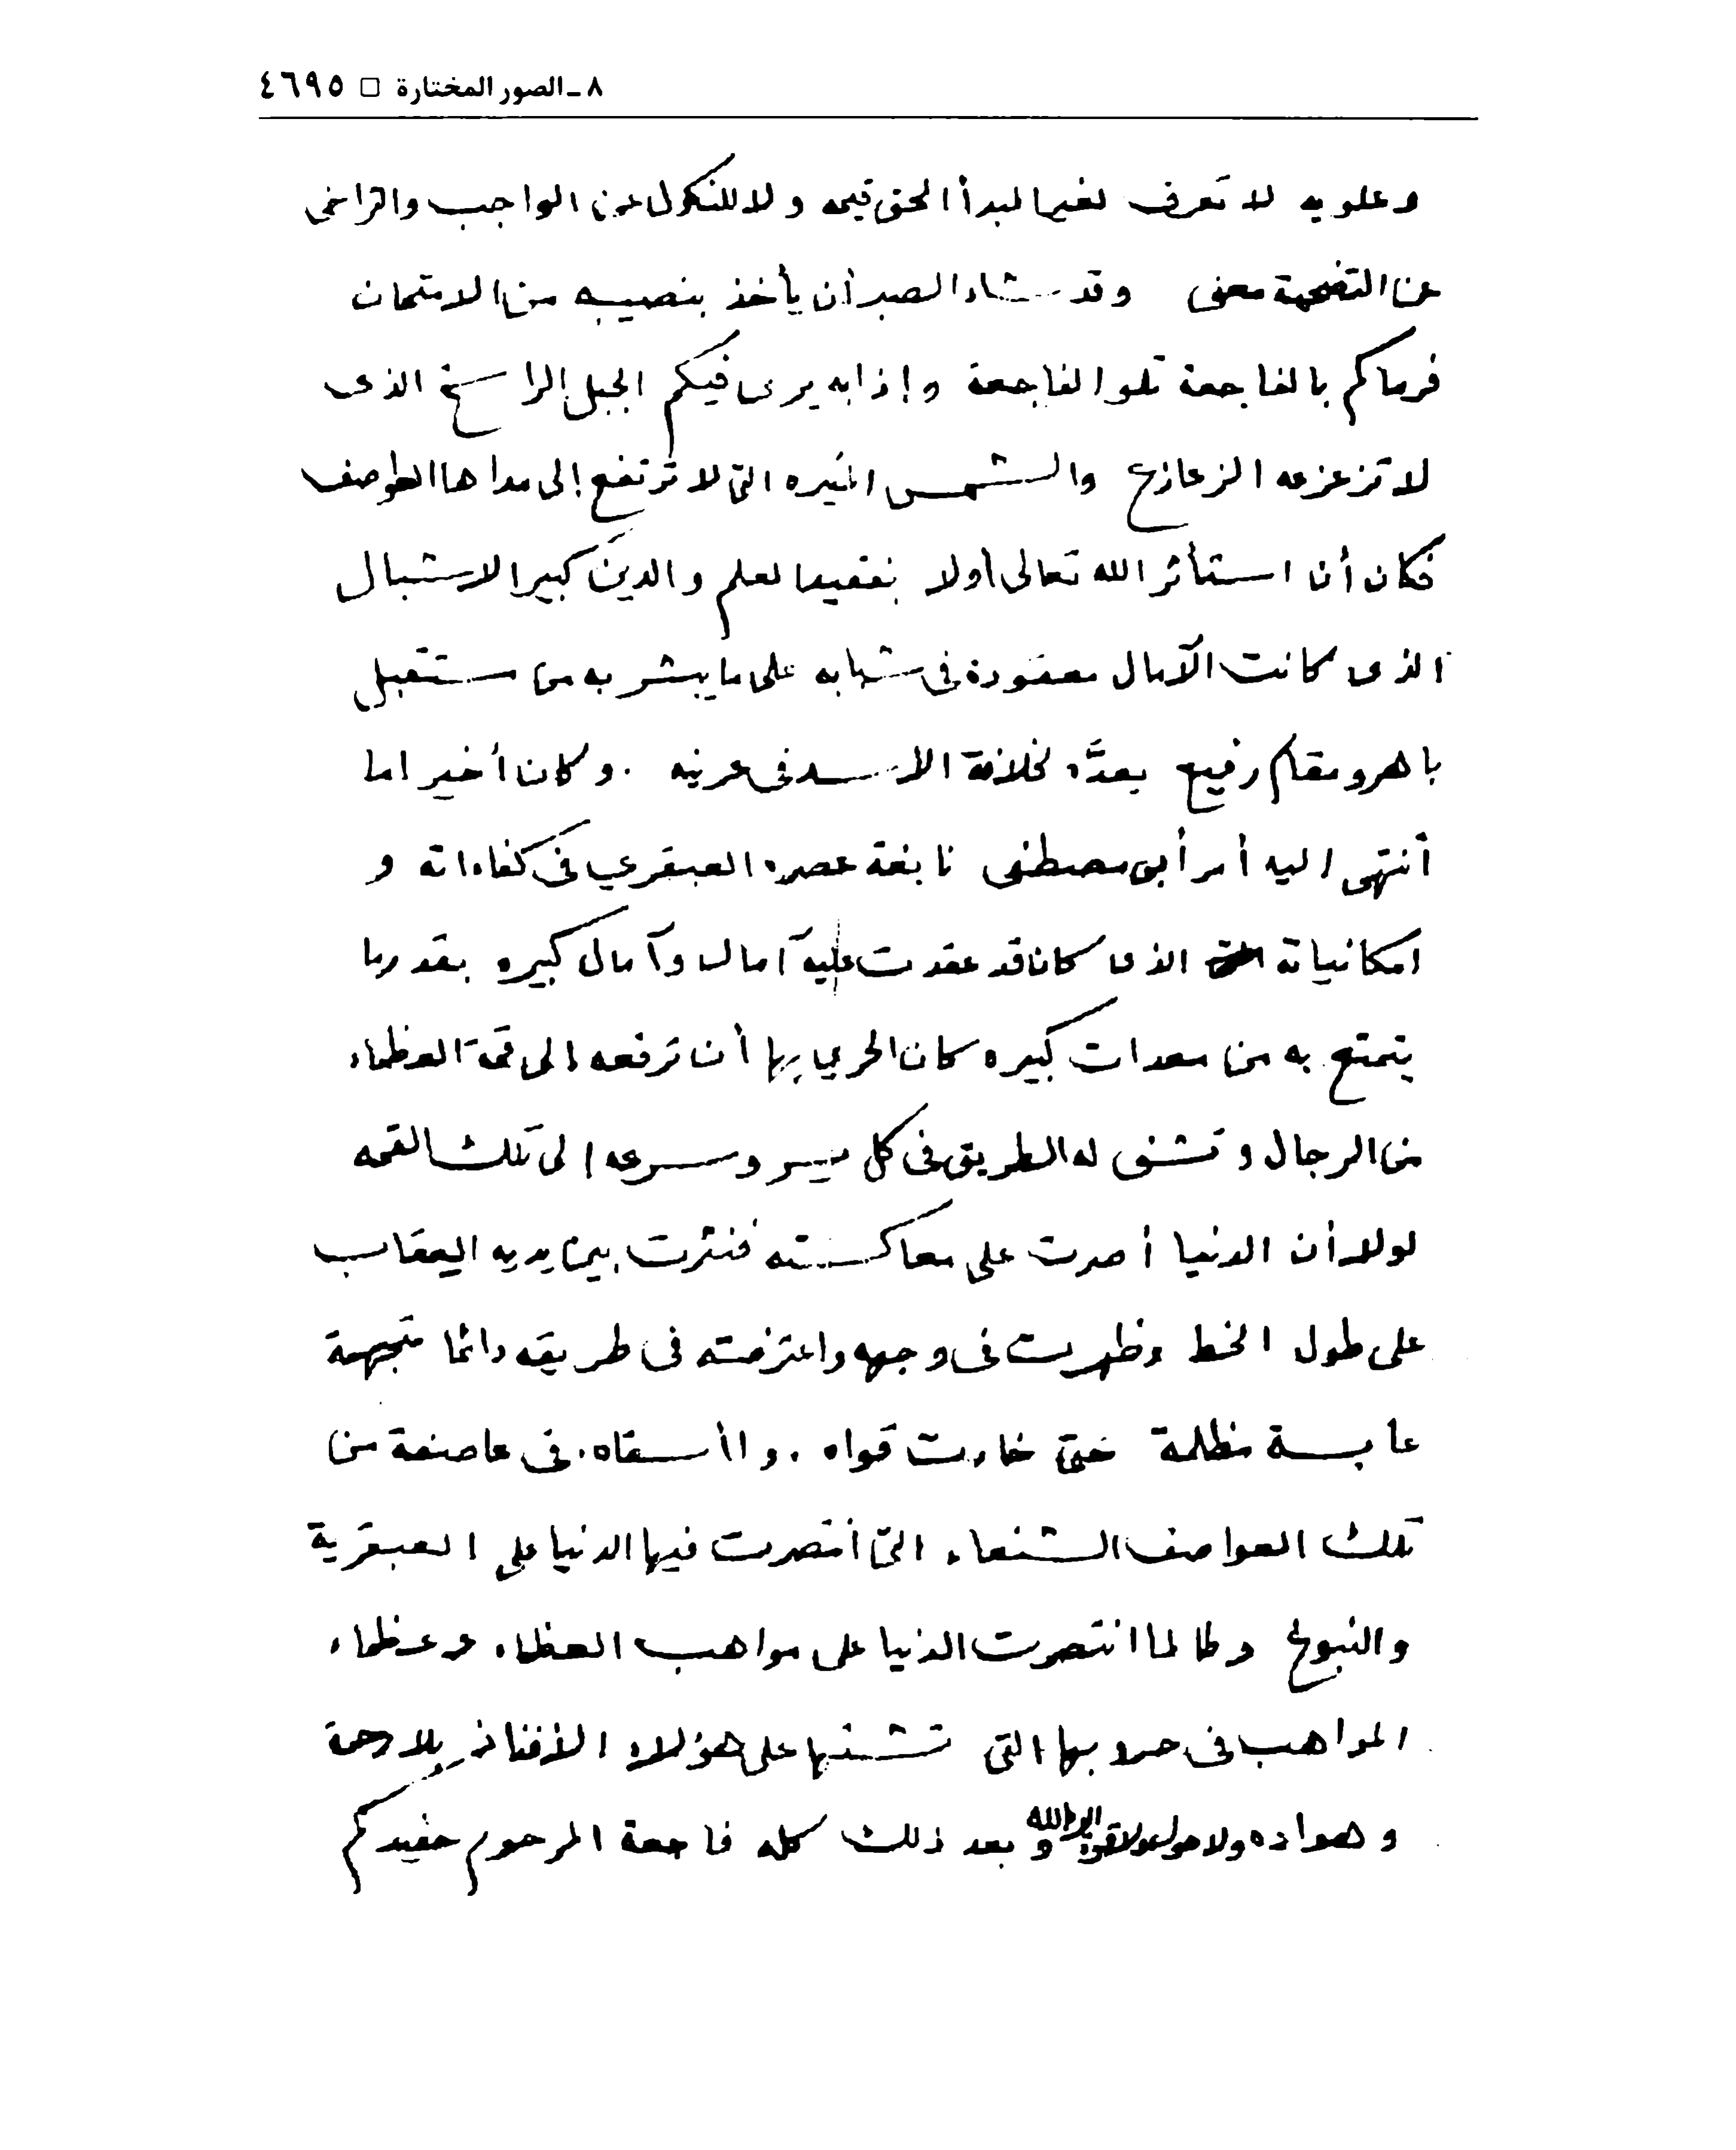 ٨ ـ الصور المختارة □ ٤٦٩٥
وعلويه لا تعرف لغير المبدأ الحق قيمه ولا للنكول عن الواجب والتراخى
عن التضحية معنى وقد شاء الصبر أن يأخذ بنصيبه من الامتحان
فرماكم بالفاجعة تلو الفاجعة وإذا به يرى فيكم الجبل الراسخ الذى
لا تزعزعه الزعازع والشمس المنيره التى لا ترتفع إلى مداها العواصف
فكان أن استأثر الله تعالى أولا بفقيد العلم والدين كبير الاشبال
الذى كانت الآمال معقودة فى شبابه على ما يبشر به من مستقبل
باهر ومقام رفيع يعدَّه لخلافة الأسد فى عرينه . وكان أخير اما
أنتهى اليه أمر أبى مصطفى نابغة عصره العبقري فى كفاءاته و
امكانياته الذى كان قد عقدت عليه آمال وآمال كبيره بقدر ما
يتمتع به من معدات كبيره كان الحري بها أن ترفعه الى قمة العظماء
من الرجال وتشق له الطريق فى كل يسر وسرعه الى تلك القمه
لولا أن الدنيا أصرت على معاكسته فنثرت بين يديه العقاب
على طول الخط وظهرت فى وجهه واعترضته فى طريقه دائما متجهمة
عابسة مظلمة حتى خارت قواه . واأسفاه . فى عاصفة من
تلك العواصف الشنعاء التى أنتصرت فيها الدنيا على العبقرية
والنبوغ وطالما انتصرت الدنيا على مواهب العظماء وعظماء
المواهب فى حروبها التى تشنها على هؤلاء الأفذاذ بلا رحمة
وهواده ولا حول ولا قوة الا بالله و بعد ذلك كله فاجعة المرحوم حفيدكم